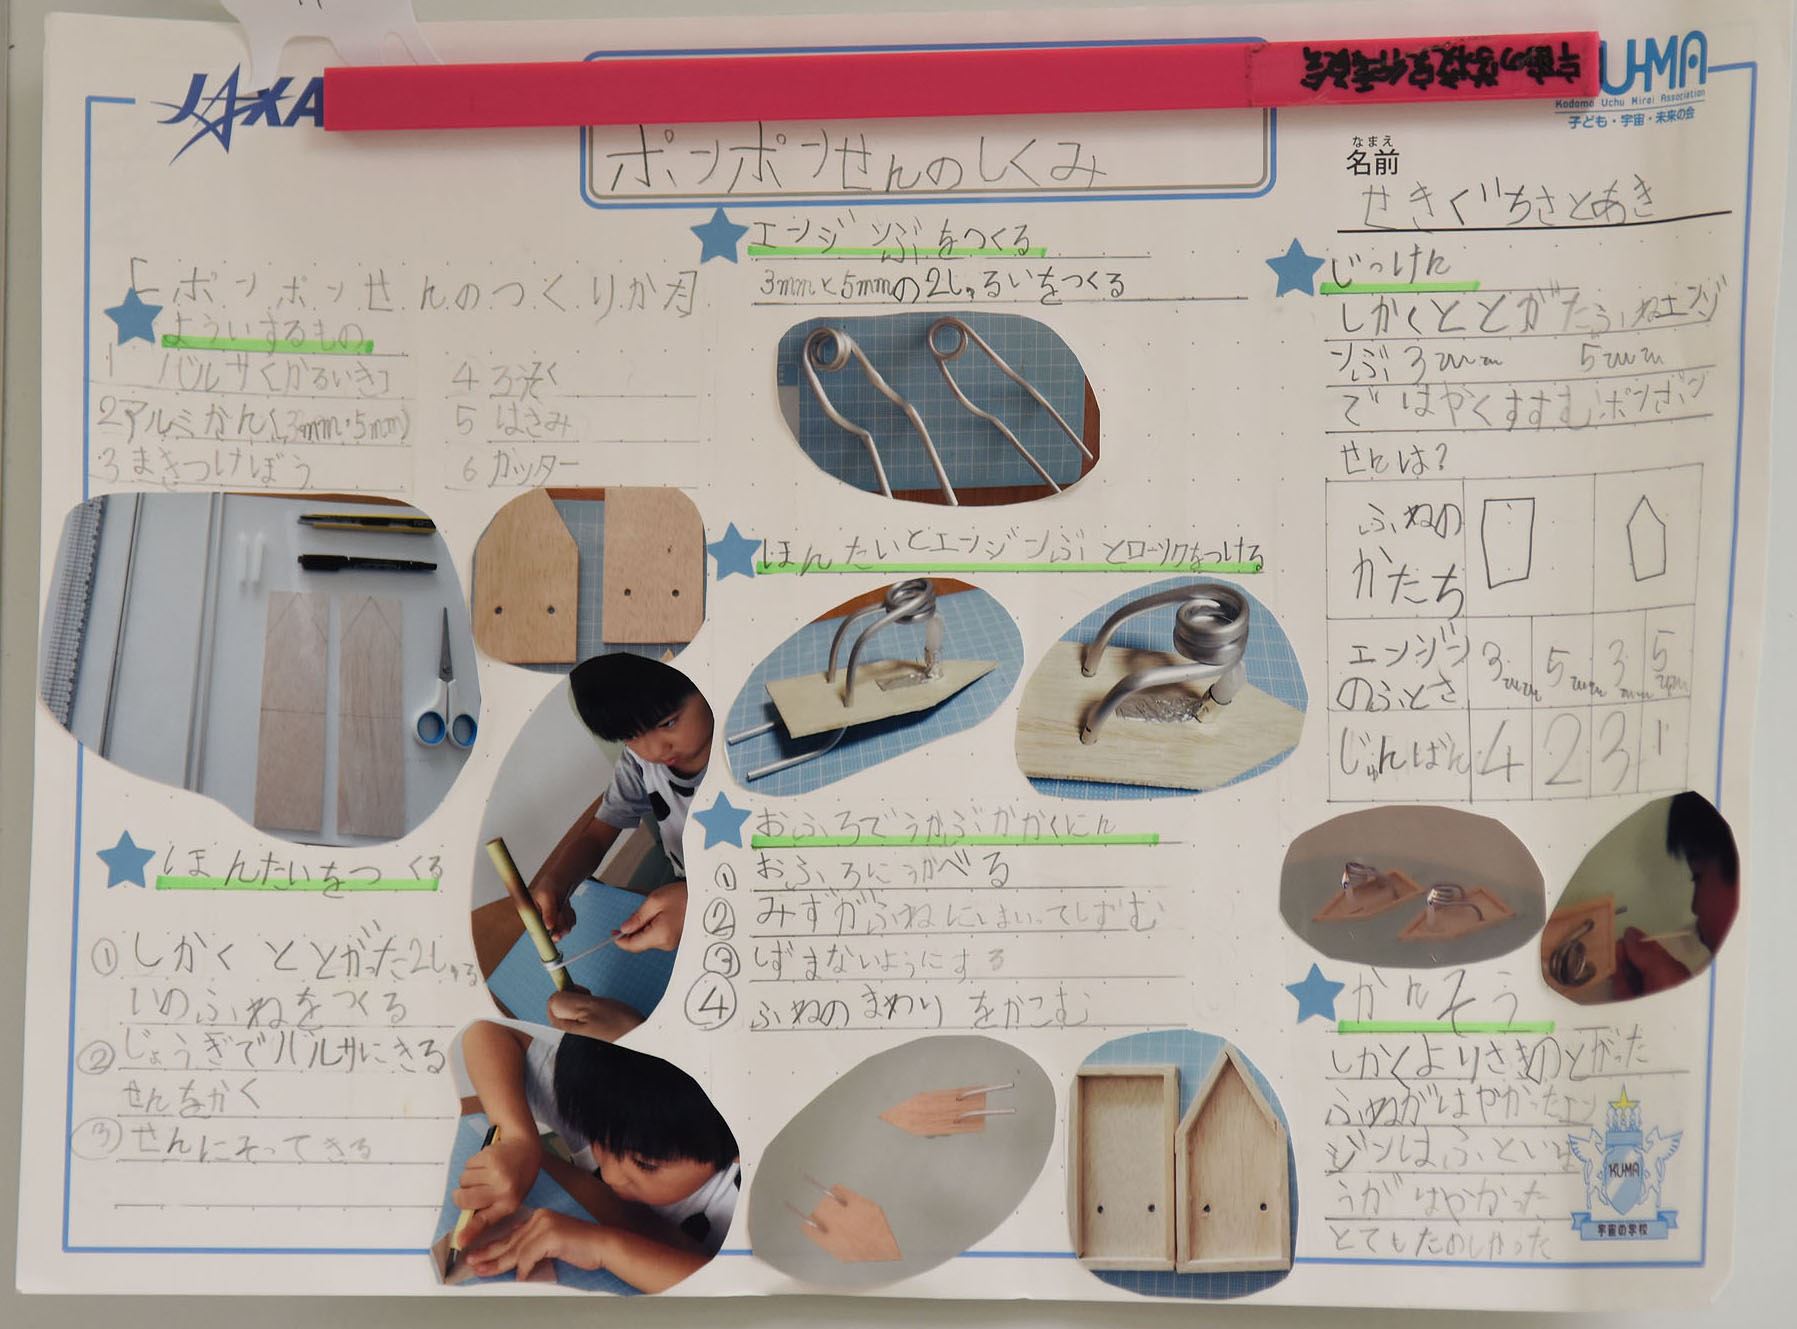 JAXA
宇宙の学校実行委員会
KUMA
Kodomo Uchu Mirai Association
子ども・宇宙・未来の会
ポンポンせんのしくみ
なまえ
名前
せきぐちさとあき
「ポンポンせんのつくりか方」
よういするもの
1 バルサ(かるいき)
2アルミかん(3mm・5mm)
3まきつけぼう
4 ろうそく
5 はさみ
6 カッター
ほんたいをつくる
①しかくととがった2しゅる
いのふねをつくる
②じょうぎでバルサにきる
せんをかく
③せんにそってきる
エンジンぶをつくる
3mmと5mmの2しゅるいをつくる
ほんたいとエンジンぶとローソクをつける
おふろでうかぶかかくにん
①おふろにうかべる
②みずがふねにはいってしずむ
③しずまないようにする
④ふねのまわりをかこむ
じっけん
しかくととがたふねエンジ
ンぶ3mm 5mm
ではやくすすむポンポン
せんは?
ふねの
かたち
エンジン
のふとさ
3mm 5mm 3mm 5mm
じゅんばん 4 2 3 1
かんそう
しかくよりさきのとがった
ふねがはやかったエン
ジンはふといほ
うがはやかった
とてもたのしかった
KUMA
宇宙の学校